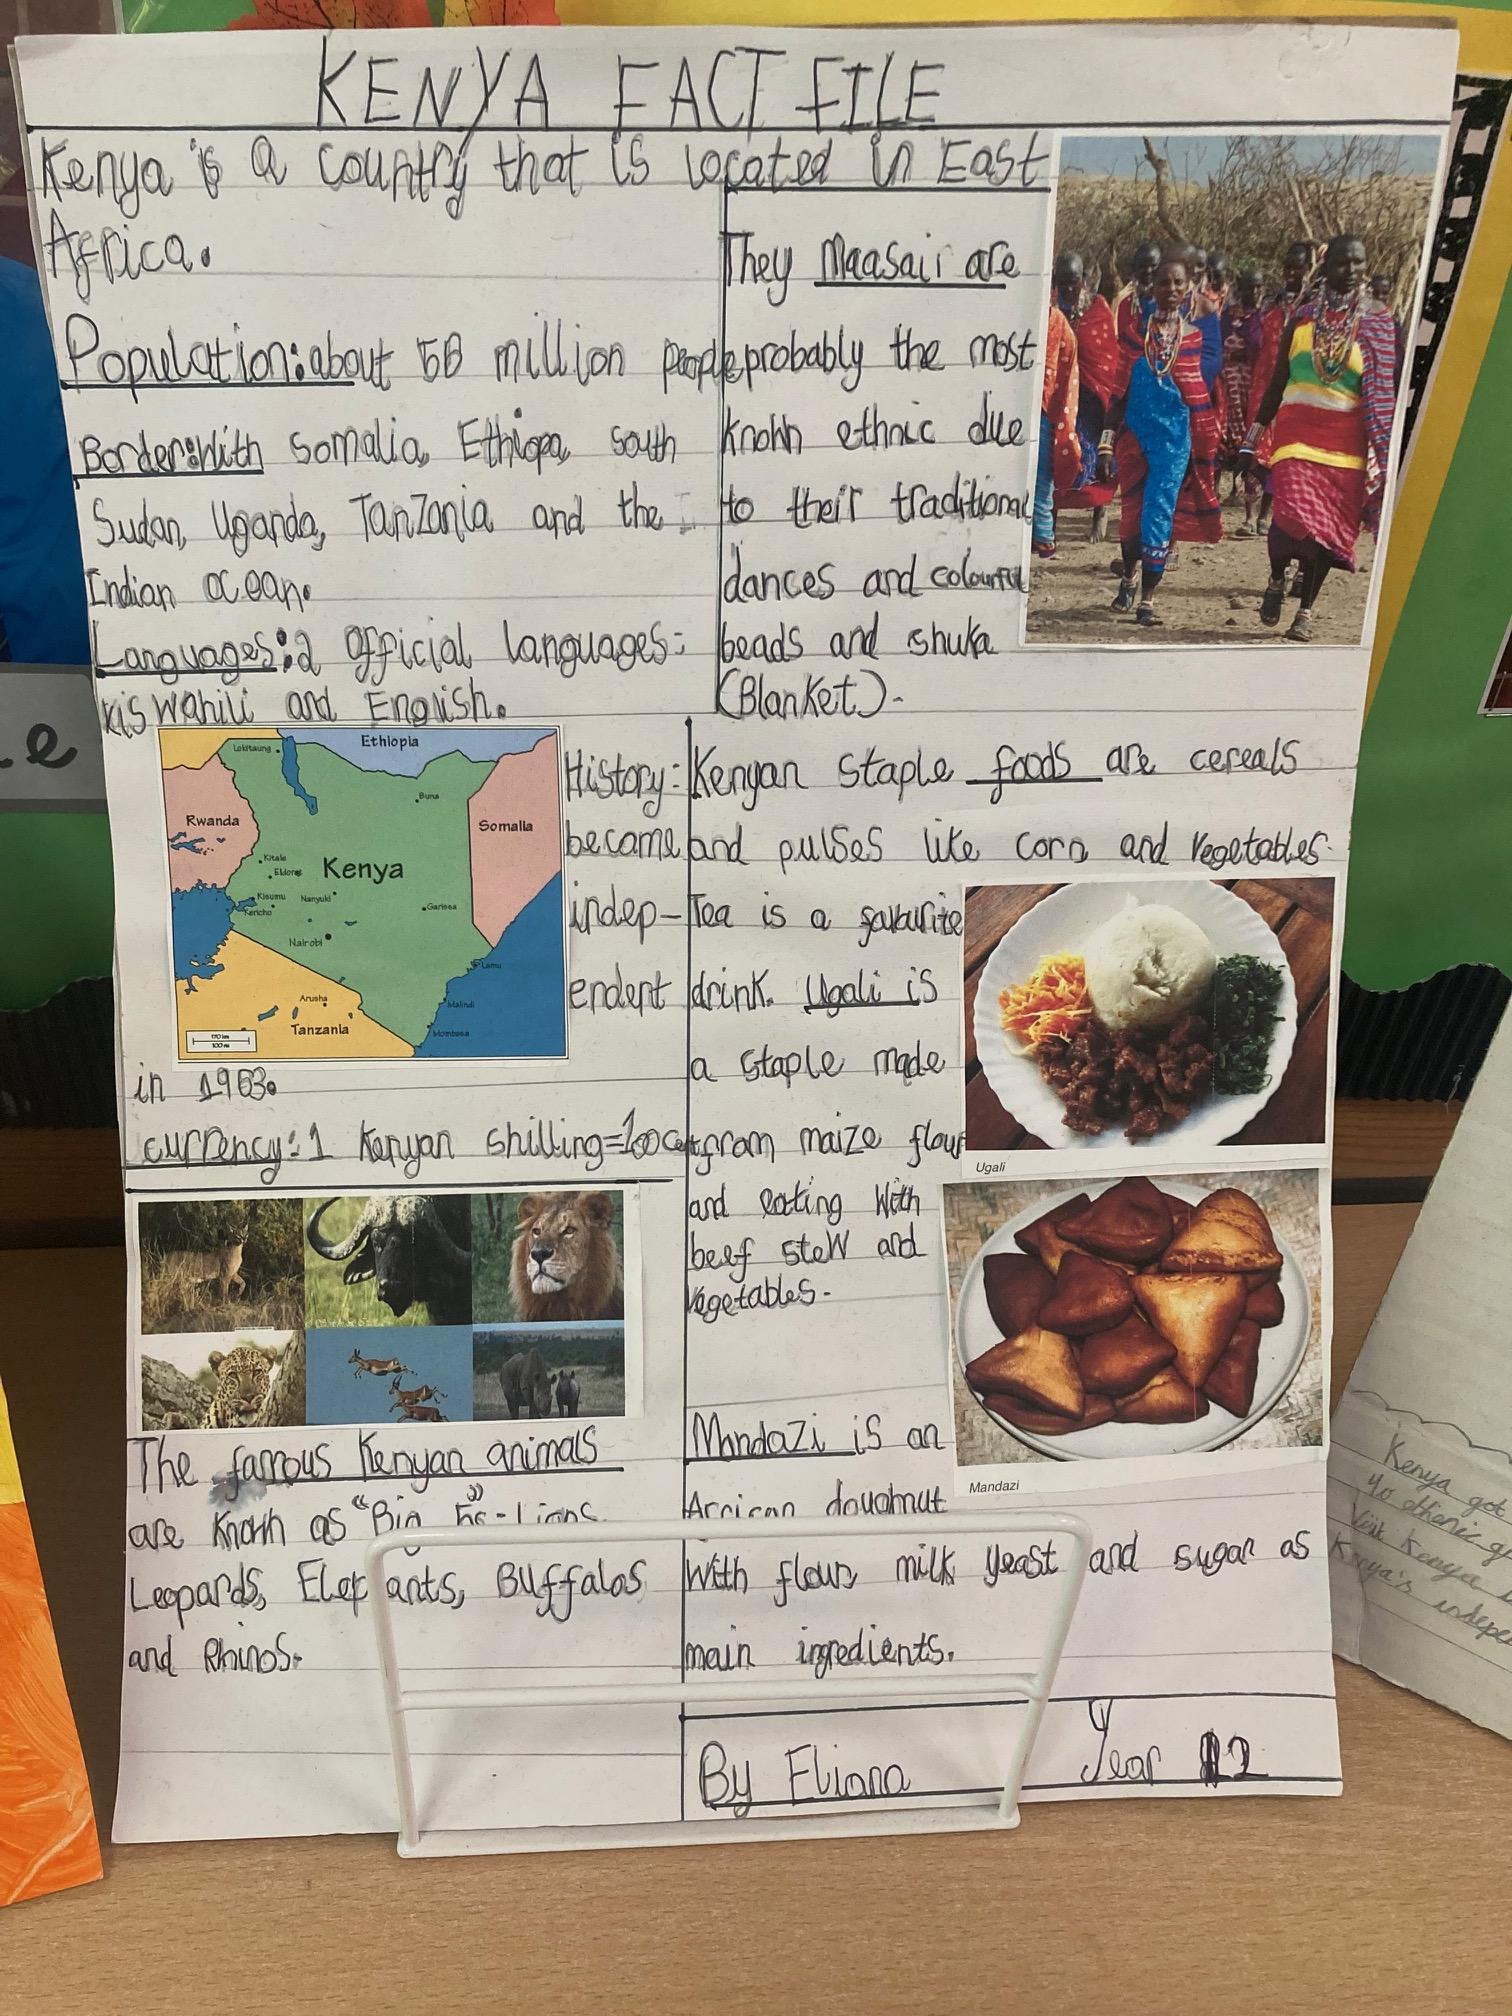 KENYA FACT FILE
Kenya is a country that is located in East
Africa.
Population: about 50 million people
Border: With Somalia, Ethiopa, south
Sudan, Uganda, Tanzania and the
Indian ocean.
Languages: 2 official languages:
kiswahili and English.
They Maasair are
probably the most
known ethnic due
to their traditional
dances and colourful
beads and shuka
(Blanket).
Ethiopia
Lokitaung
Buna
Rwanda
Somalia
Kitale
Eldoret
Kenya
Kisumu
Nanyuki
Kericho
Garissa
Nairobi
Lamu
Malindi
Arusha
Mombasa
Tanzania
170 km
100 mi
History:
became
indep-
endent
in 1963.
currency: 1 Kenyan shilling=100cent
The famous Kenyan animals
are known as "Big 5"- Lions,
Leopards, Elephants, Buffalos
and Rhinos.
Kenyan staple foods are cereals
and pulses like corn and vegetables.
Tea is a favourite
drink. Ugali is
a staple made
from maize flour
and eating with
beef stew and
vegetables.
Ugali
Mandazi is an
African doughnut
with flour, milk yeast and sugar as
main ingredients.
Mandazi
By Eliana Year 2
e
Kenya got
40 ethenic
Visit Kenya
Kenya's